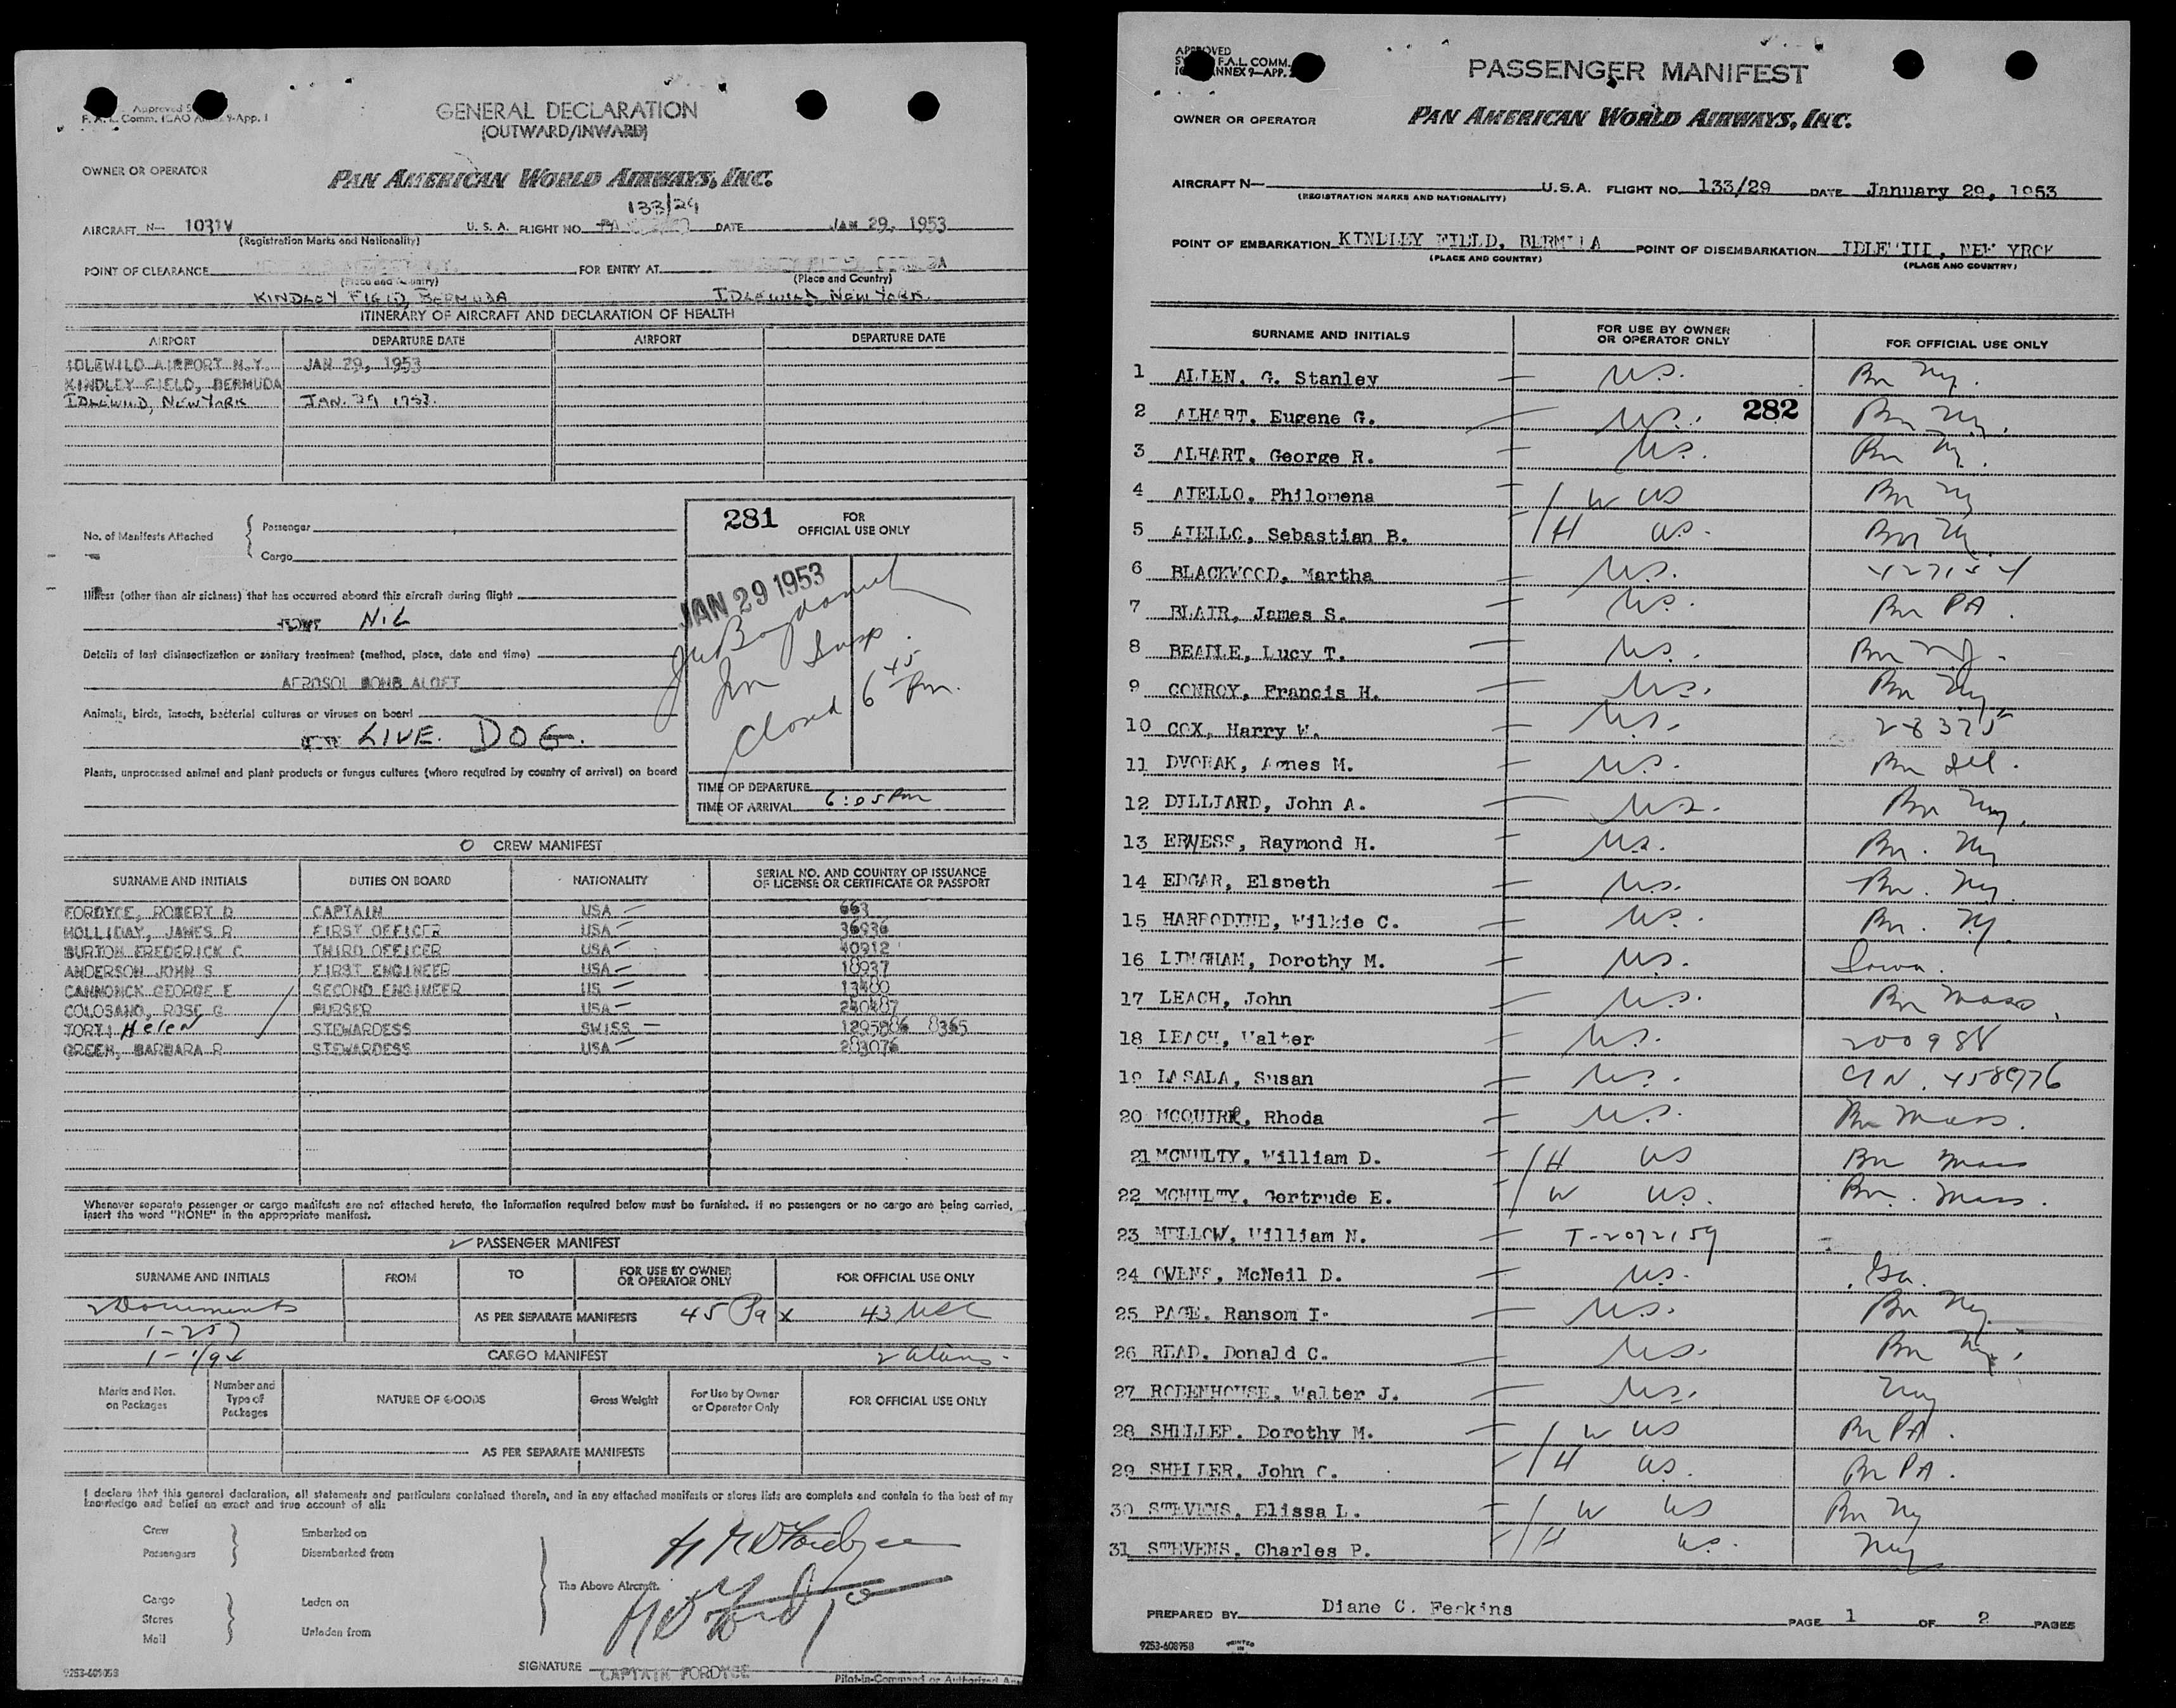 Approved
F. A. L. Comm. ICAO 9-App. 1
GENERAL DECLARATION
(OUTWARD/INWARD)
OWNER OR OPERATOR
PAN AMERICAN WORLD AIRWAYS, INC.
133/29
AIRCRAFT N— 1031V U. S. A. FLIGHT NO. DATE JAN 29, 1953
(Registration Marks and Nationality)
POINT OF CLEARANCE FOR ENTRY AT
(Place and Country) (Place and Country)
KINDLEY FIELD, BERMUDA IDLEWILD NEW YORK.
ITINERARY OF AIRCRAFT AND DECLARATION OF HEALTH
AIRPORT DEPARTURE DATE AIRPORT DEPARTURE DATE
IDLEWILD AIRPORT N.Y. JAN 29, 1953
KINDLEY FIELD, BERMUDA
IDLEWILD, NEW YORK JAN. 29 1953.
No. of Manifests Attached { Passenger
Cargo
281 FOR
OFFICIAL USE ONLY
JAN 29 1953
Closed 6 45 Pm.
Illness (other than air sickness) that has occurred aboard this aircraft during flight
NIL
Details of last disinsectization or sanitary treatment (method, place, date and time)
AEROSOL BOMB ALOFT
Animals, birds, insects, bacterial cultures or viruses on board
LIVE. DOG.
Plants, unprocessed animal and plant products or fungus cultures (where required by country of arrival) on board
TIME OF DEPARTURE
TIME OF ARRIVAL 6:05 Pm
CREW MANIFEST
SURNAME AND INITIALS DUTIES ON BOARD NATIONALITY SERIAL NO. AND COUNTRY OF ISSUANCE OF LICENSE OR CERTIFICATE OR PASSPORT
FORDYCE, ROBERT D CAPTAIN USA 663
HOLLIDAY, JAMES R FIRST OFFICER USA 36936
BURTON FREDERICK C THIRD OFFICER USA 40912
ANDERSON JOHN S FIRST ENGINEER USA 18937
CANNONCK GEORGE E SECOND ENGINEER US 13480
COLOSANO, ROSE G PURSER USA 240487
TORTI Helen STEWARDESS SWISS 8365
GREEN, BARBARA R STEWARDESS USA 283076
Whenever separate passenger or cargo manifests are not attached hereto, the information required below must be furnished. If no passengers or no cargo are being carried,
insert the word "NONE" in the appropriate manifest.
PASSENGER MANIFEST
SURNAME AND INITIALS FROM TO FOR USE BY OWNER OR OPERATOR ONLY FOR OFFICIAL USE ONLY
2 Documents AS PER SEPARATE MANIFESTS 45 Pax 43 USC
1-257
1-I/94 CARGO MANIFEST 2 aliens
Marks and Nos. on Packages Number and Type of Packages NATURE OF GOODS Gross Weight For Use by Owner or Operator Only FOR OFFICIAL USE ONLY
AS PER SEPARATE MANIFESTS
I declare that this general declaration, all statements and particulars contained therein, and in any attached manifests or stores lists are complete and contain to the best of my
knowledge and belief an exact and true account of all:
Crew } Embarked on
Passengers Disembarked from
The Above Aircraft.
Cargo Laden on
Stores }
Mail Unladen from
SIGNATURE CAPTAIN FORDYCE
Pilot-in-Command or Authorized
APPROVED
F.A.L. COMM.
ANNEX 9—APP.
PASSENGER MANIFEST
OWNER OR OPERATOR PAN AMERICAN WORLD AIRWAYS, INC.
AIRCRAFT N— U.S.A. FLIGHT NO. 133/29 DATE January 29, 1953
(REGISTRATION MARKS AND NATIONALITY)
POINT OF EMBARKATION KINDLEY FIELD, BERMUDA POINT OF DISEMBARKATION IDLEWILD, NEW YROK
(PLACE AND COUNTRY) (PLACE AND COUNTRY)
SURNAME AND INITIALS FOR USE BY OWNER OR OPERATOR ONLY FOR OFFICIAL USE ONLY
1 ALLEN, G. Stanley U.S. Bn Ny.
2 ALHART, Eugene G. U.S. 282 Bn Ny.
3 ALHART, George R. U.S. Bn Ny.
4 AIELLO, Philomena W US Bn Ny
5 AIELLO, Sebastian B. H US. Bn Ny.
6 BLACKWOOD, Martha U.S.
7 BLAIR, James S. U.S. Bn PA.
8 BEADLE, Lucy T. U.S. Bn N.J.
9 CONROY, Francis H. U.S. Bn Ny
10 COX, Harry W. U.S. 28375
11 DVORAK, Agnes M. U.S. Bn Ill.
12 DILLIARD, John A. U.S. Bn Ny.
13 ERNESS, Raymond H. U.S. Bn. Ny
14 EDGAR, Elspeth U.S. Bn. Ny.
15 HARRODINE, Wilkie C. U.S. Bn. Ny.
16 LINGHAM, Dorothy M. U.S. Iowa.
17 LEACH, John U.S. Bn Mass.
18 LEACH, Walter U.S. 200988
19 LASALA, Susan U.S. CIN. 458976
20 MCQUIRK, Rhoda U.S. Bn Mass.
21 MCNULTY, William D. H US Bn Mass
22 MCNULTY, Gertrude E. W US. Bn. Mass.
23 MELLOW, William N. T-2072159
24 OWENS, McNeil D. U.S. Ga.
25 PAGE, Ransom I. U.S. Bn Ny.
26 READ, Donald C. U.S. Bn Ny.
27 RODENHOUSE, Walter J. U.S. Ny
28 SHELLER, Dorothy M. W US Bn PA.
29 SHELLER, John C. H US. Bn PA.
30 STEVENS, Elissa L. W US Bn Ny
31 STEVENS, Charles P. H US. Ny
PREPARED BY Diane C. Perkins PAGE 1 OF 2 PAGES
9253-60895B PRINTED IN